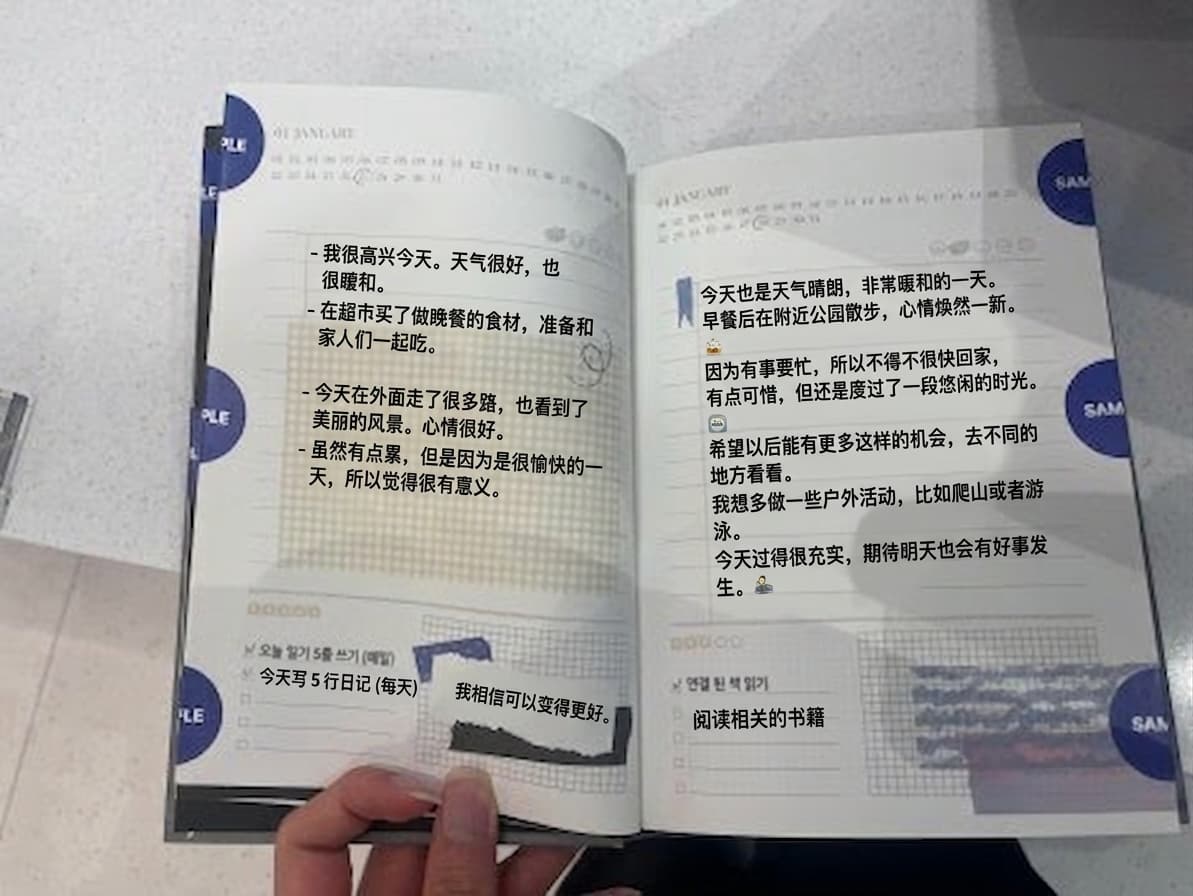 PLE
01 JANUARY
- 我很高兴今天。天气很好，也
很暖和。
- 在超市买了做晚餐的食材，准备和
家人们一起吃。
- 今天在外面走了很多路，也看到了
美丽的风景。心情很好。
- 虽然有点累，但是因为是很愉快的一
天，所以觉得很有意义。
PLE
오늘 일기 5줄 쓰기 (매일)
今天写 5 行日记 (每天)
我相信可以变得更好。
PLE
01 JANUARY
SAM
今天也是天气晴朗，非常暖和的一天。
早餐后在附近公园散步，心情焕然一新。
因为有事要忙，所以不得不很快回家，
有点可惜，但还是度过了一段悠闲的时光。
SAM
希望以后能有更多这样的机会，去不同的
地方看看。
我想多做一些户外活动，比如爬山或者游
泳。
今天过得很充实，期待明天也会有好事发
生。
연결 된 책 읽기
阅读相关的书籍
SAM